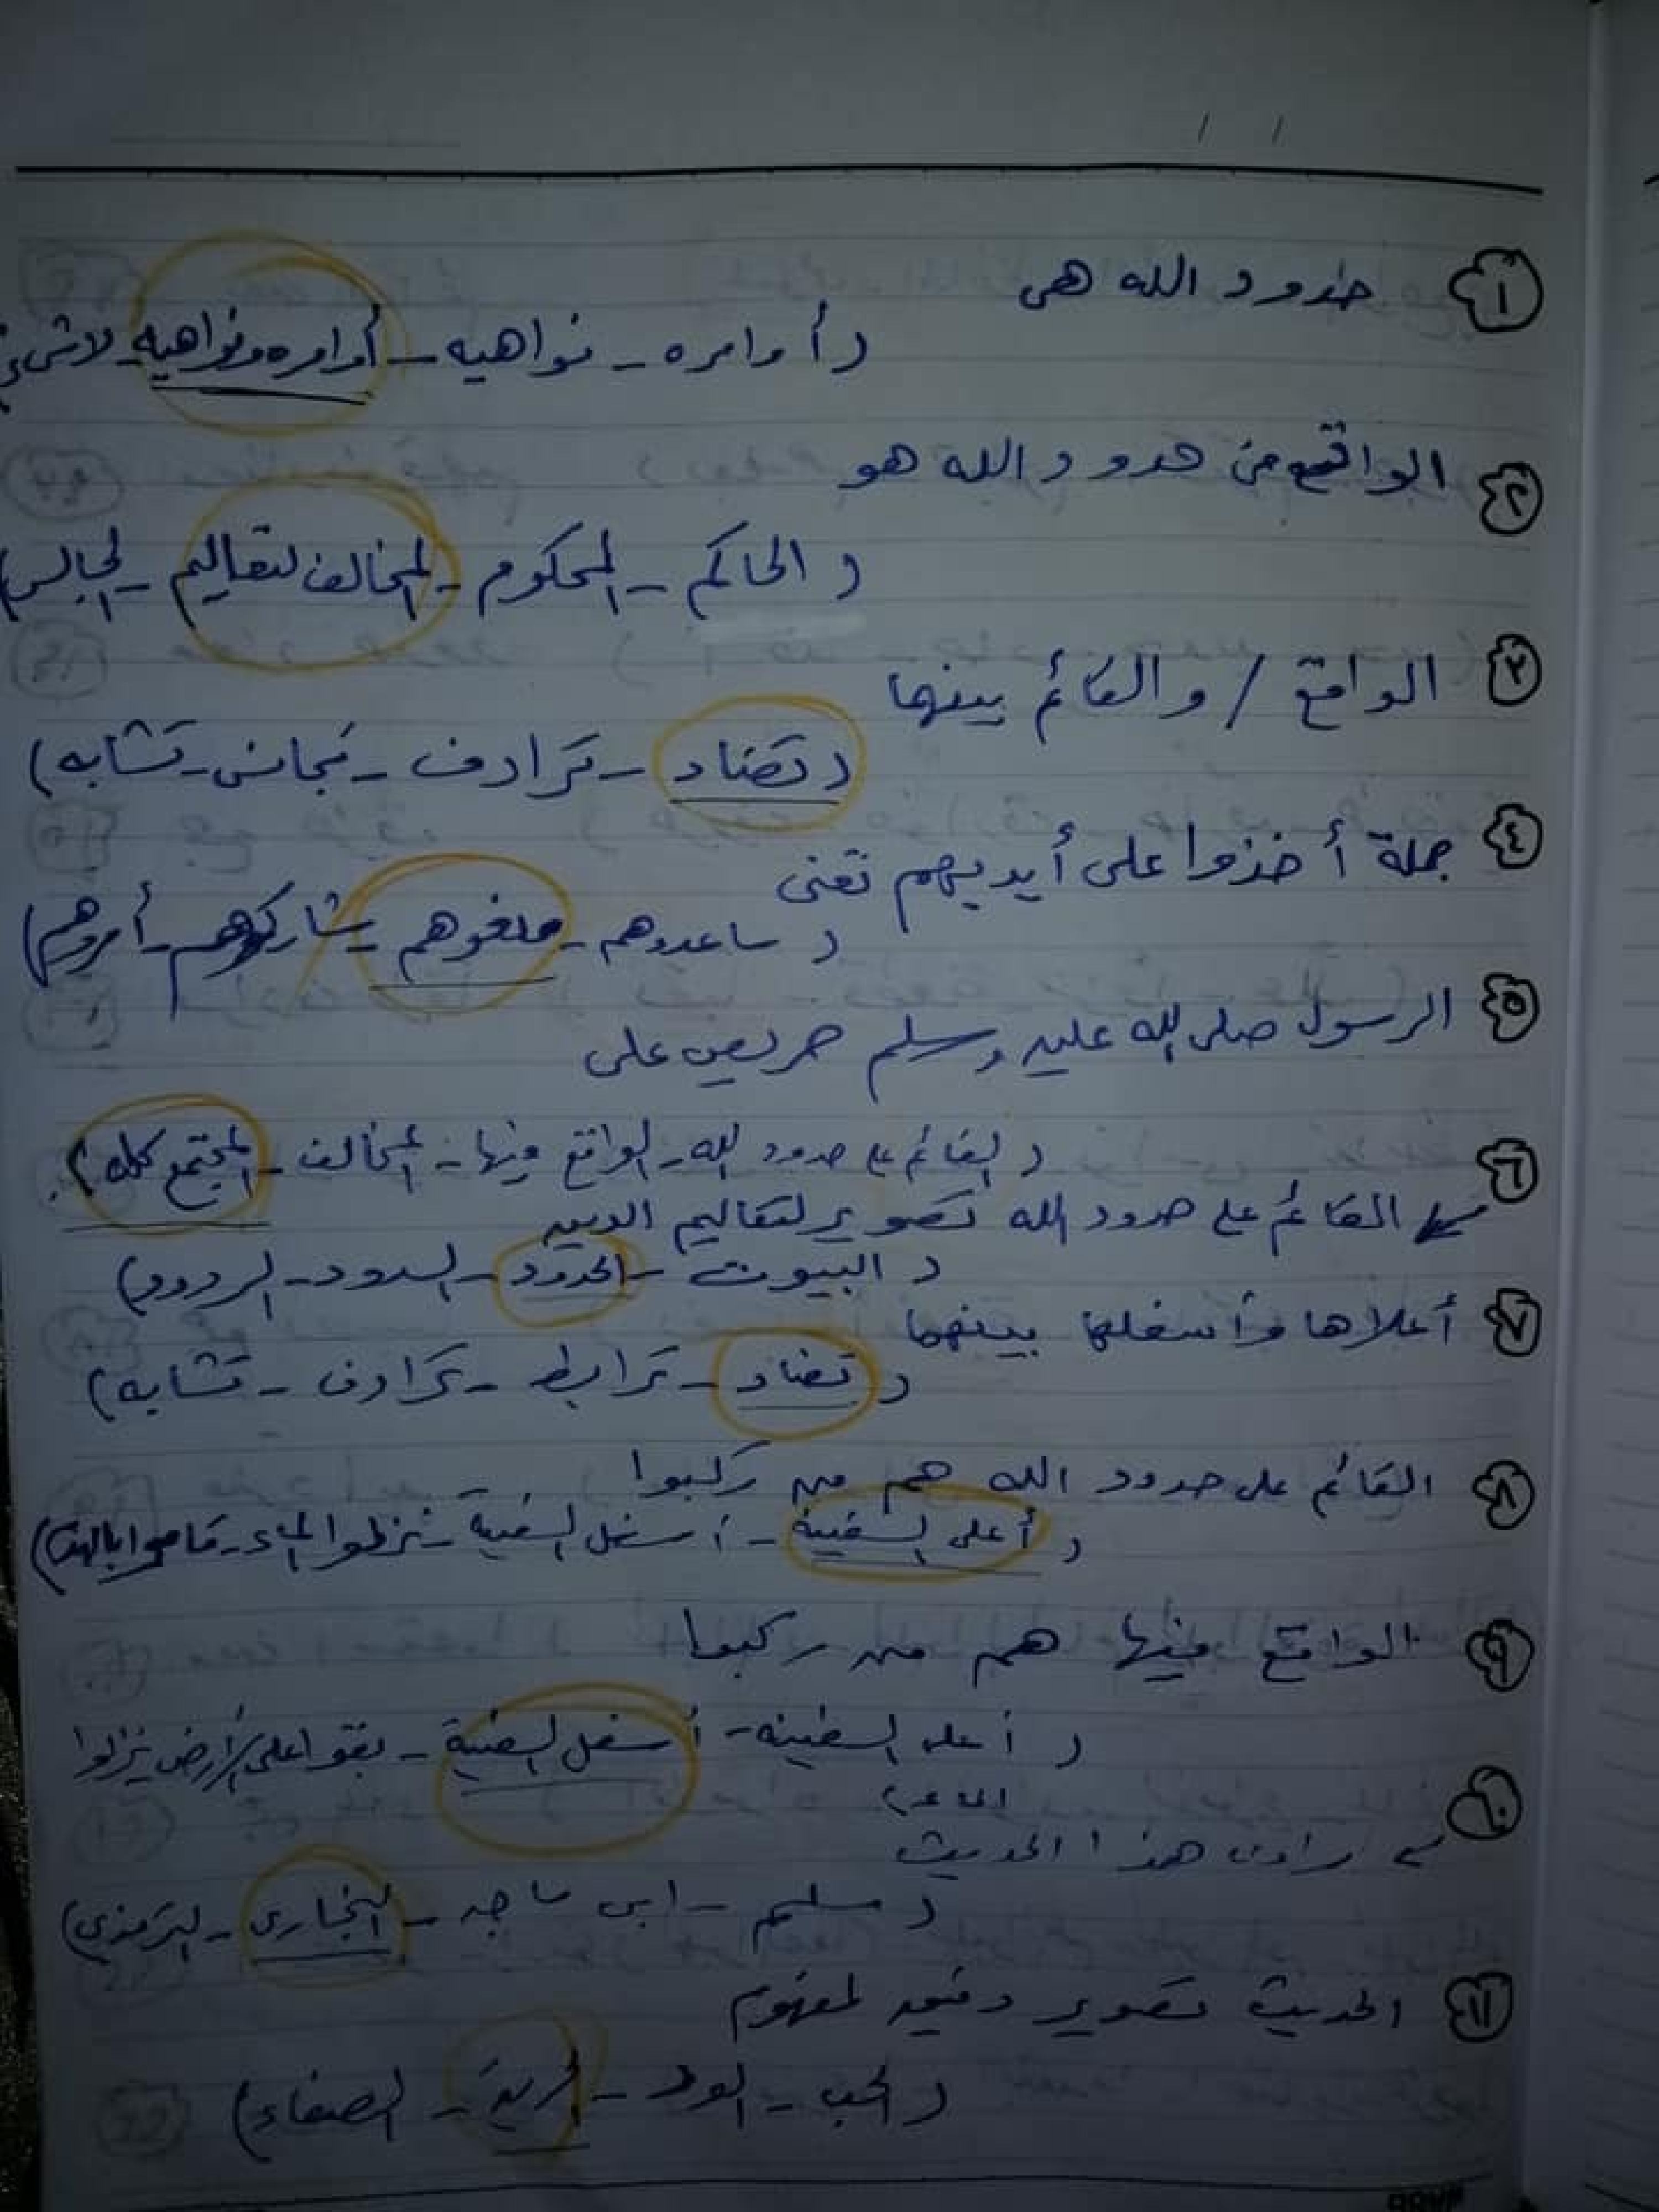 ١ حدود الله هى
(أوامره - نواهيه - أوامره ونواهيه - لاشىء
٢ الواقع من حدود الله هو
(الحاكم - المحكوم - المخالف لتعاليم - الجالس)
٣ الواقع / والقائم بينهما
(تضاد - ترادف - تجانس - تشابه)
٤ جملة أخذوا على أيديهم تعنى
(ساعدوهم - منعوهم - شاركوهم - أمروهم)
٥ الرسول صلى الله عليه وسلم حريص على
(القائم على حدود الله - الواقع فيها - المخالف - المجتمع كله)
٦ القائم على حدود الله تصوير لتعاليم الدين
(البيوت - الحدود - السدود - الردود)
٧ أعلاها وأسفلها بينهما
(تضاد - ترابط - ترادف - تشابه)
٨ القائم على حدود الله هم من ركبوا
(أعلى السفينة - أسفل السفينة - نزلوا الماء - قاموا)
٩ الواقع فيها هم من ركبوا
(أعلى السفينة - أسفل السفينة - بقوا على الأرض نزلوا
الماء)
١٠ راوى هذا الحديث
(مسلم - ابن ماجه - البخارى - الترمذى)
١١ الحديث تصوير دقيق لمفهوم
(الحب - الود - الحرية - الصفاء)